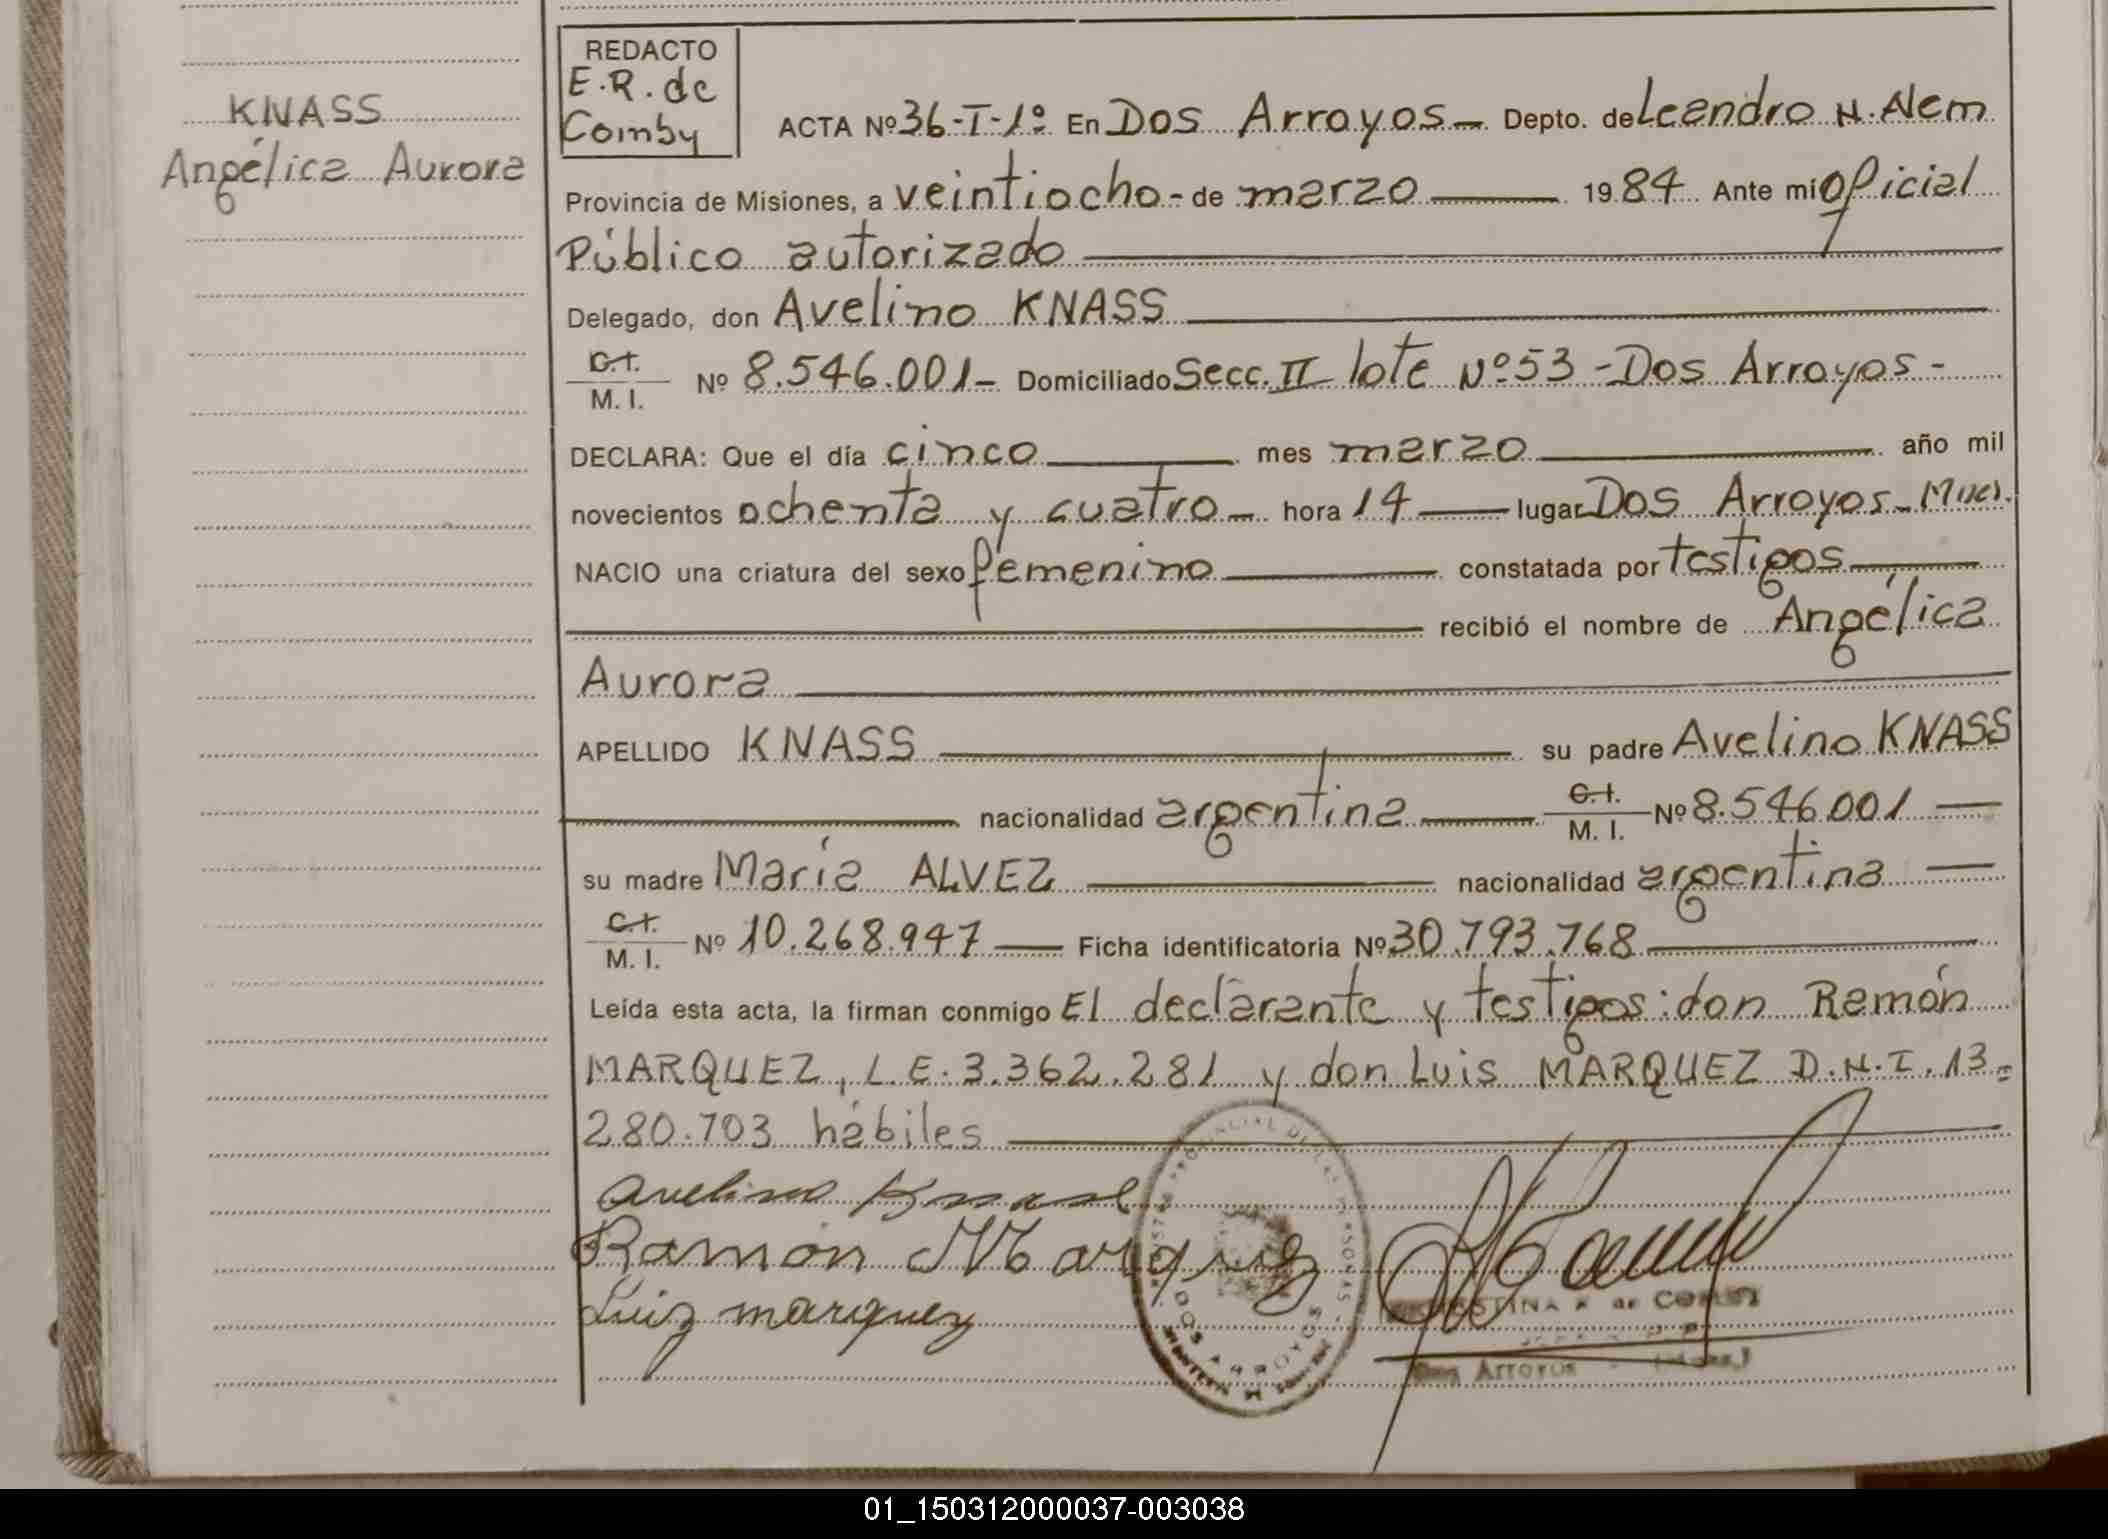 KNASS
Angélica Aurora
REDACTO
E.R. de
Comby
ACTA Nº 36-I-1º En Dos Arroyos — Depto. de Leandro N. Alem
Provincia de Misiones, a veintiocho - de marzo — 1984 Ante mi Oficial
Público autorizado
Delegado, don Avelino KNASS
C.I.
M. I. Nº 8.546.001 - Domiciliado Secc. II lote Nº 53 - Dos Arroyos -
DECLARA: Que el día cinco — mes marzo — año mil
novecientos ochenta y cuatro — hora 14 — lugar Dos Arroyos - Mnes.
NACIO una criatura del sexo femenino — constatada por testigos —
recibió el nombre de Angélica
Aurora
APELLIDO KNASS — su padre Avelino KNASS
— nacionalidad argentina — C.I. M. I. Nº 8.546.001 —
su madre María ALVEZ — nacionalidad argentina —
C.I.
M. I. Nº 10.268.947 — Ficha identificatoria Nº 30.793.768
Leída esta acta, la firman conmigo El declarante y testigos: don Ramón
MARQUEZ, L.E. 3.362.281 y don Luis MARQUEZ D.N.I. 13=
280.703 hábiles
Avelino Knass
Ramón Marquez
Luiz marquez
DOS ARROYOS
de COMBY
Dos Arroyos
01_150312000037-003038